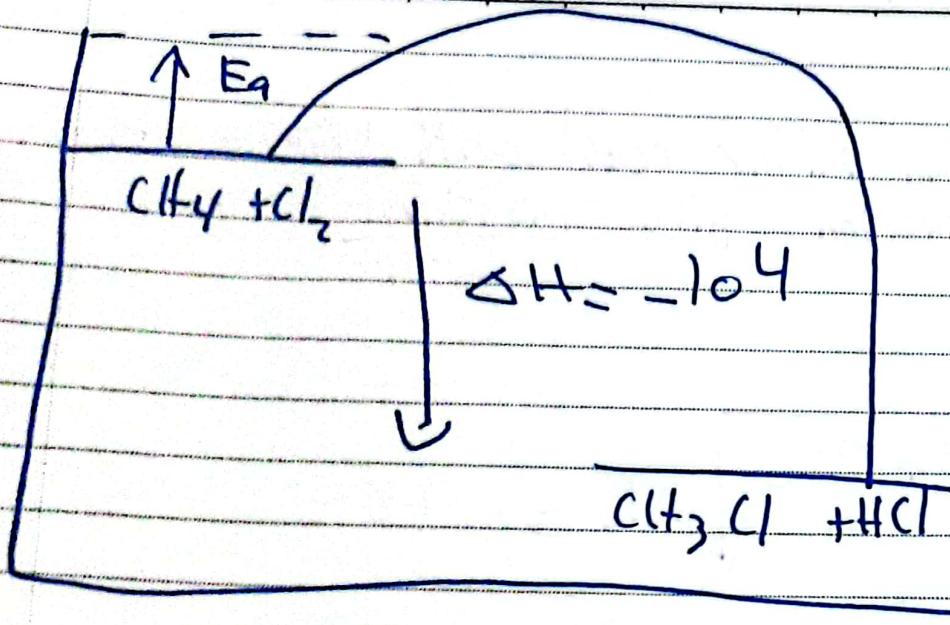 Ea
CH4 + Cl2
ΔH = -104
CH3Cl + HCl